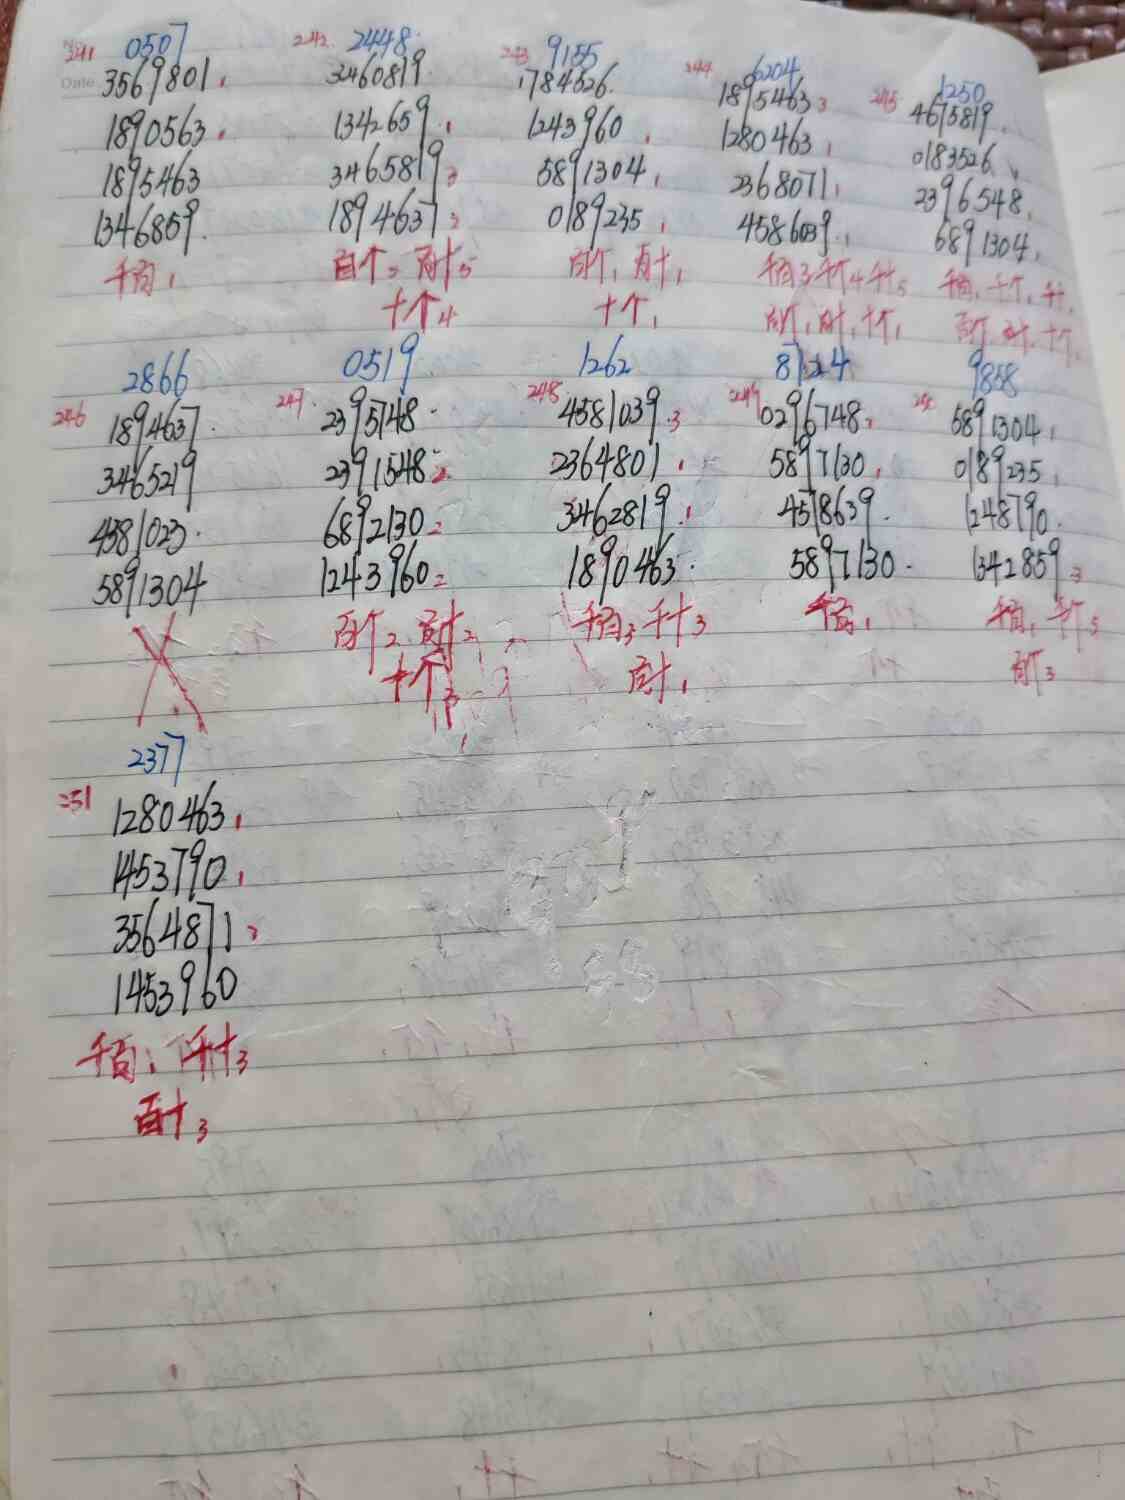 241 0507
3569801
1890563
1895463
1346859
千百1
242 2448
3460819
1342659 1
3465819 3
1894637 2
百个5 百十5
十个4
243 9155
1784526
1243960 1
5891304 1
0189235 1
百个1 百十1
十个1
244 6204
1895463 3
1280463 1
2368071 1
4586039 1
千百3 千个4 千十5
百个1 百十1 十个1
245 1250
4675819
0183526
2396548
6891304
千百1 千个1 千十1
百个 百十 十个1
246 2866
1894637
3465219
4581023
5891304
247 0519
2395748
2391548 2
6892130 2
1243960 2
百个2 百十2
十个3
248 1262
4581039 3
2364801 1
3462819 1
1890463
千百3 千十3
百十1
249 8724
0296748
5897130
4578639
5897130
千百1
250 9858
6891304
0189235
1248790
1342859 3
千百1 千个5
百个3
251 2377
1280463 1
1453790 1
3564871 2
1453960
千百1 千十3
百十3